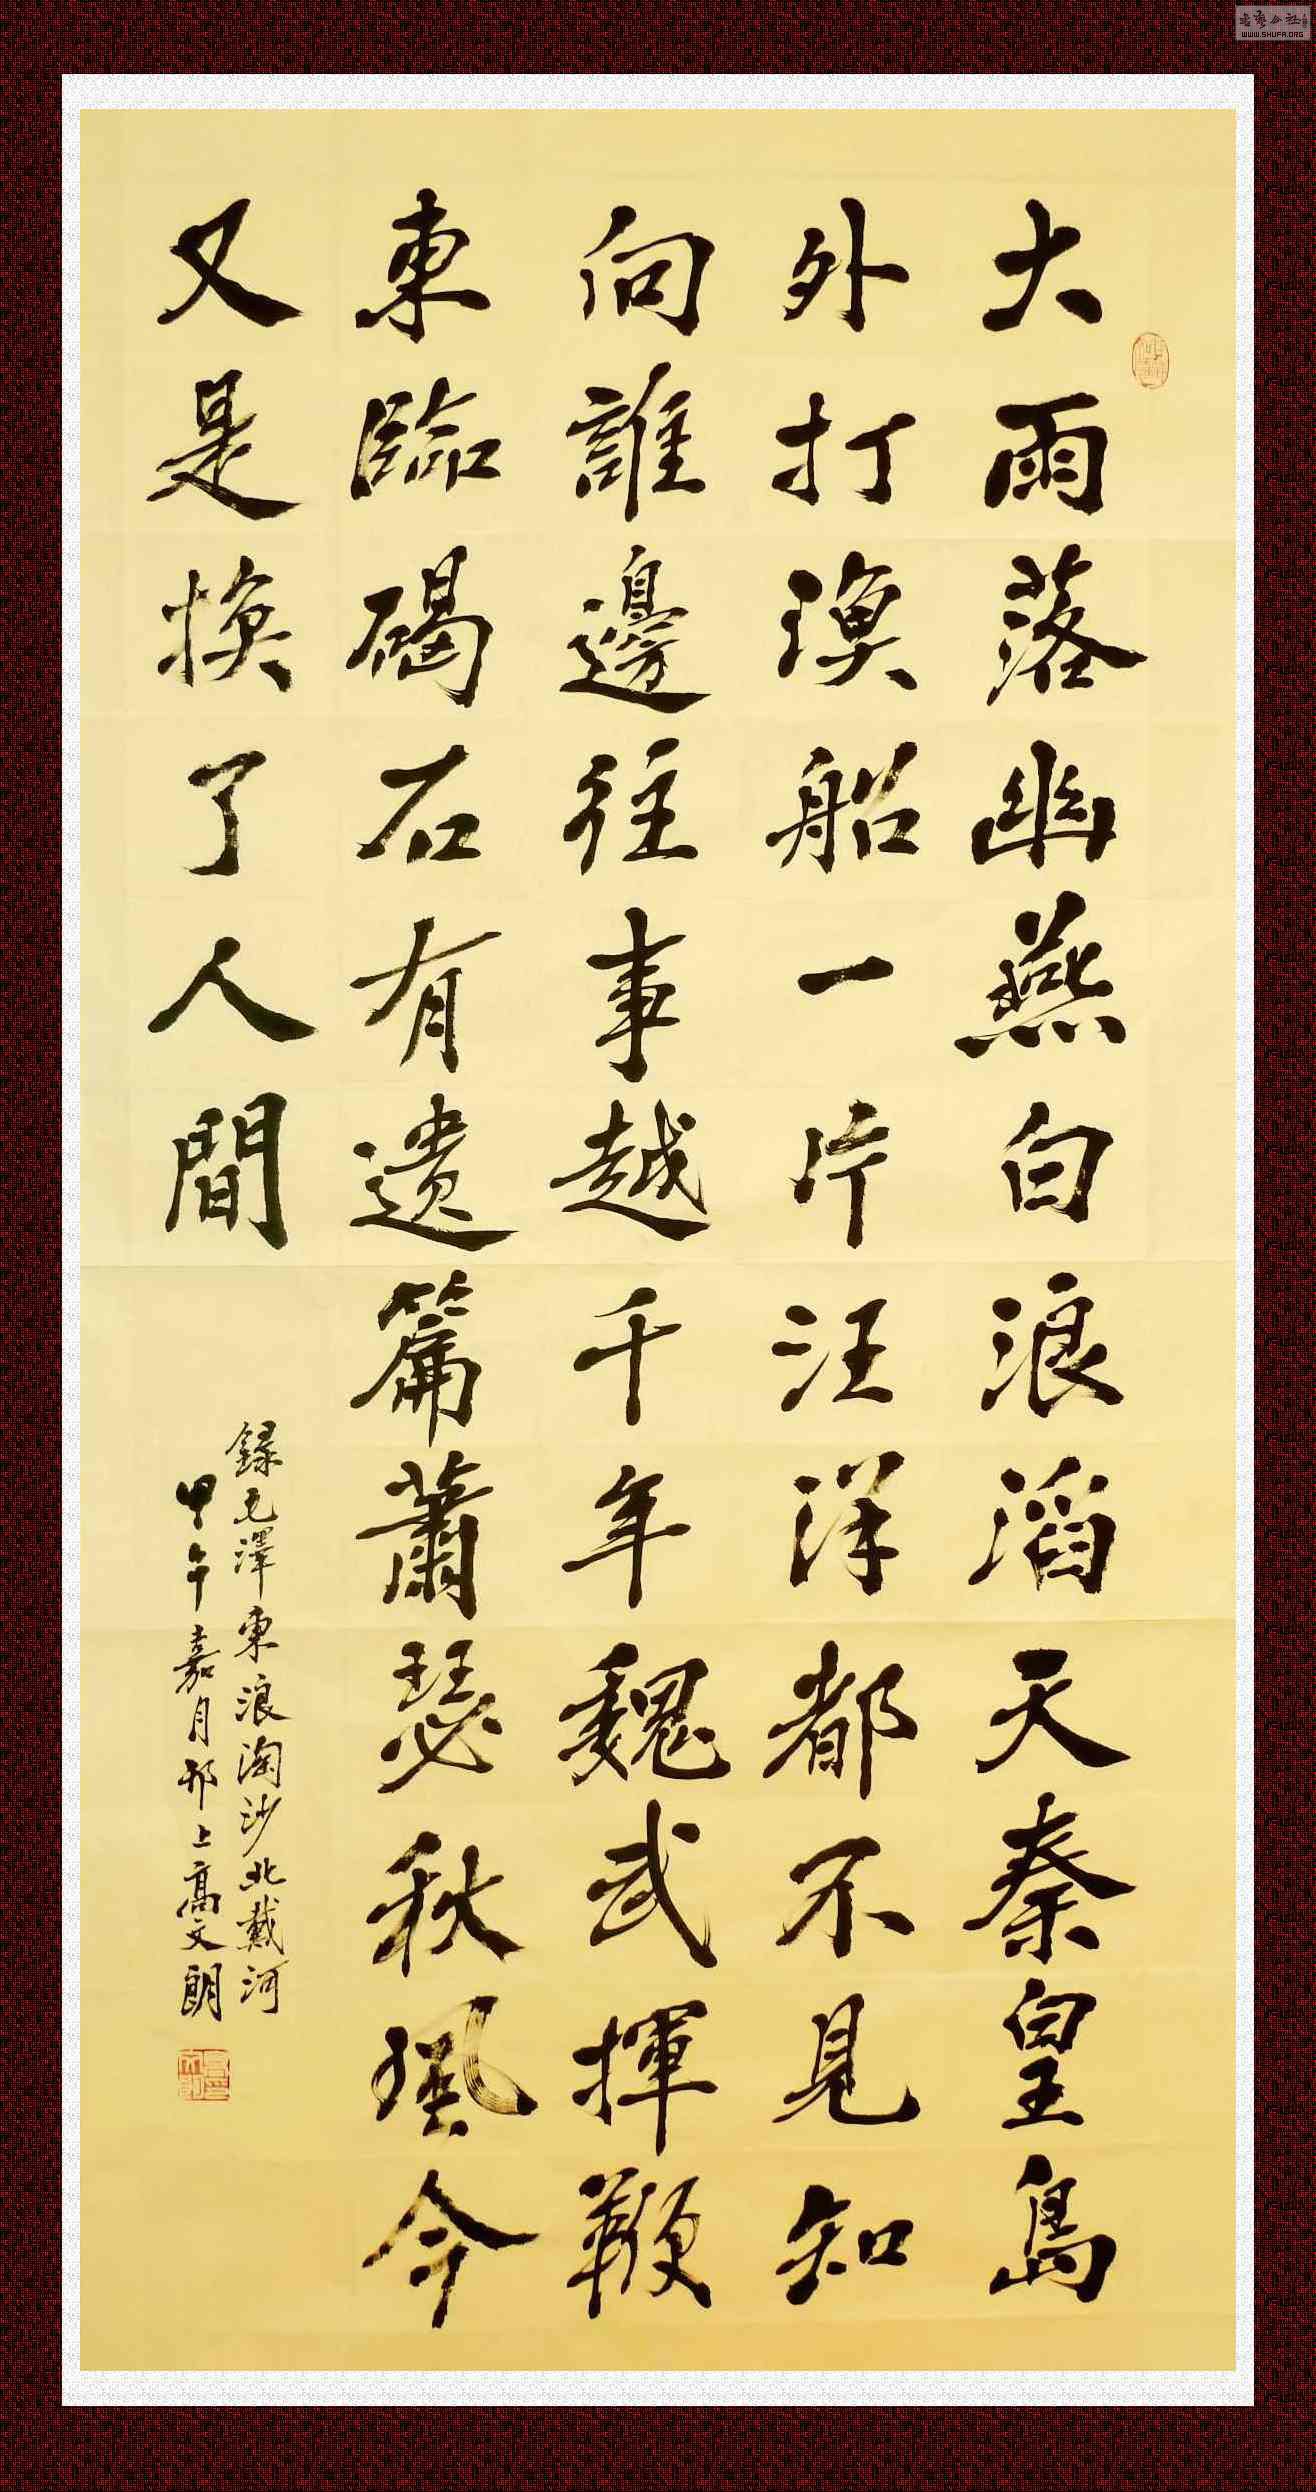 大雨落幽燕白浪滔天秦皇島
外打漁船一片汪洋都不見知
向誰邊往事越千年魏武揮鞭
東臨碣石有遺篇蕭瑟秋風今
又是換了人間
錄毛澤東浪淘沙北戴河
甲午嘉月邗上高文朗
WWW.SHUFA.ORG